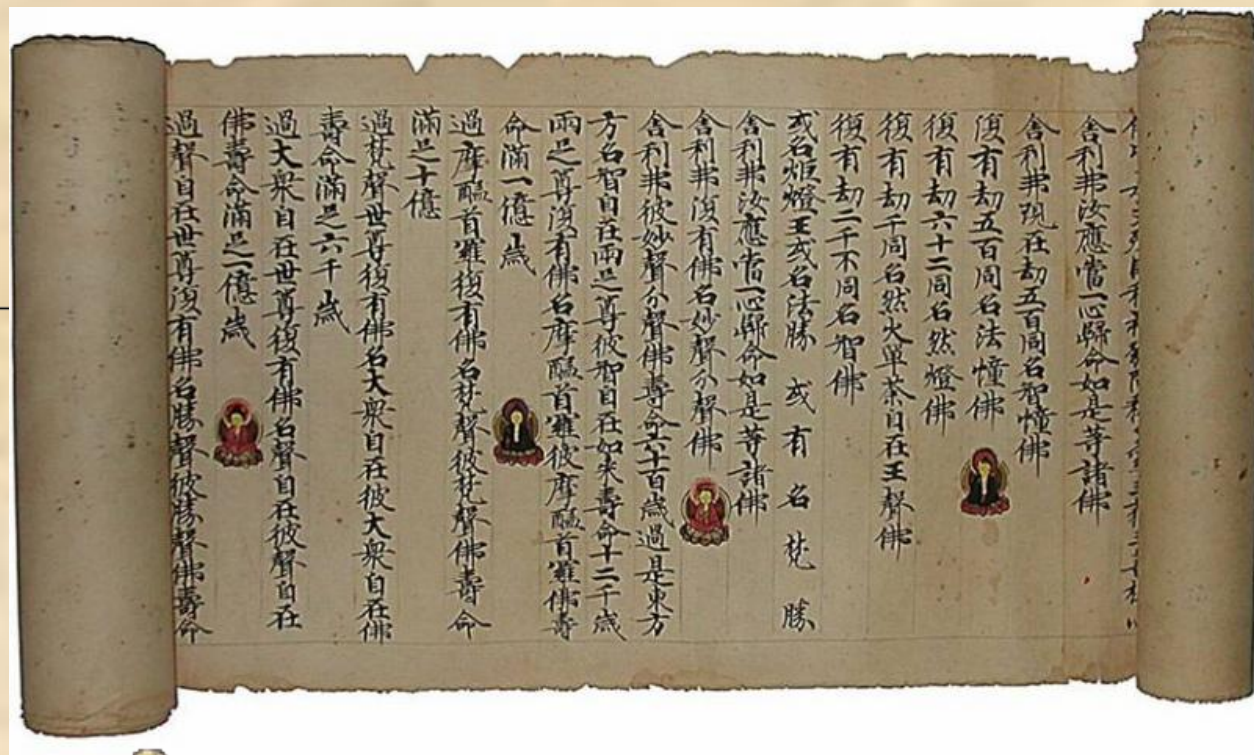 舍利弗汝應當一心歸命如是等諸佛
舍利弗現在劫五百同名智幢佛
復有劫五百同名法幢佛
復有劫六十二同名然燈佛
復有劫千同名然火單荼自在王聲佛
復有劫二千不同名智佛
或名炬燈王或名法勝 或有名梵勝
舍利弗汝應當一心歸命如是等諸佛
舍利弗復有佛名妙聲分聲佛
舍利弗彼妙聲分聲佛壽命六十百歲過是東方
方名智自在兩足尊彼智自在如来壽命十二千歲
兩足尊復有佛名摩醯首羅彼摩醯首羅佛壽
命滿一億歲
過摩醯首羅復有佛名梵聲彼梵聲佛壽命
滿足十億
過梵聲世尊復有佛名大衆自在彼大衆自在佛
壽命滿足六千歲
過大衆自在世尊復有佛名聲自在彼聲自在
佛壽命滿足一億歲
過聲自在世尊復有佛名勝聲彼勝聲佛壽命